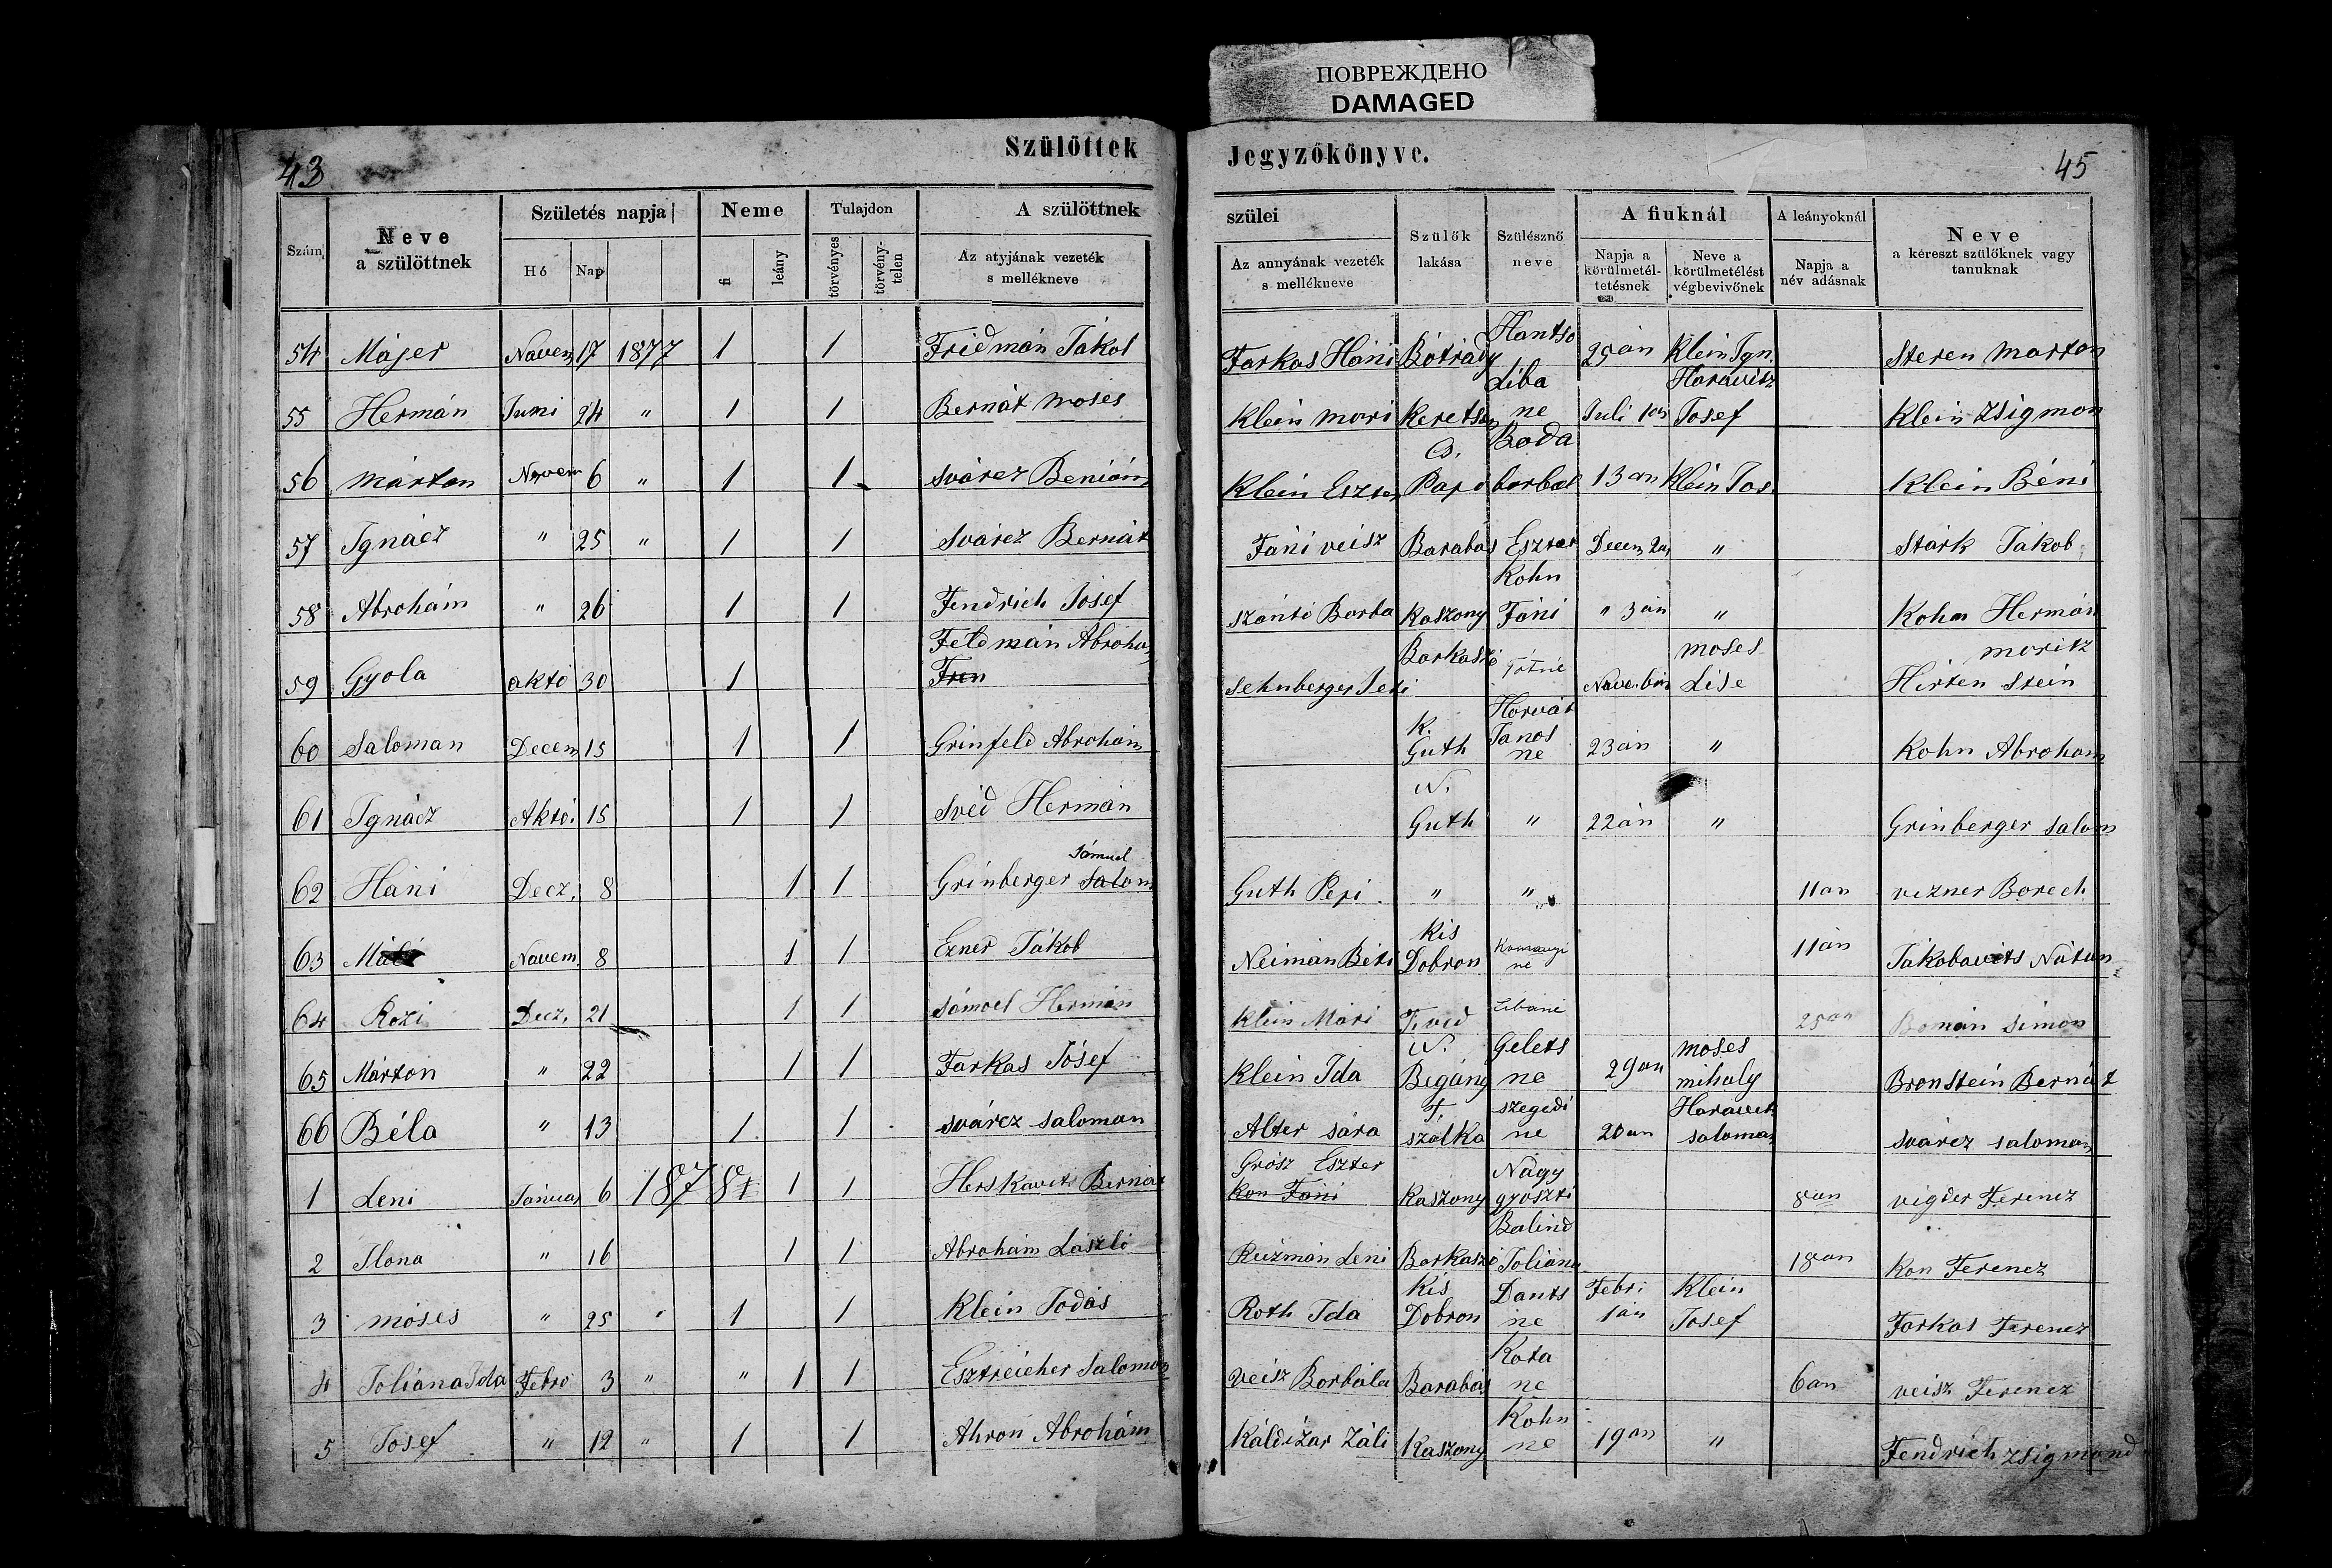 ПОВРЕЖДЕНО
DAMAGED
43
Szülöttek
Jegyzőkönyve.
45
Szám
Neve a szülöttnek
Születés napja
Hó
Nap
Neme
fi
leány
Tulajdon
törvényes
törvény-telen
A szülöttnek
Az atyjának vezeték s mellékneve
szülei
Az annyának vezeték s mellékneve
Szülők lakása
Szülésznő neve
A fiuknál
Napja a körülmetél-tetésnek
Neve a körülmetélést végbevivőnek
A leányoknál
Napja a név adásnak
Neve a kereszt szülőknek vagy tanuknak
54 Májer Novem 17 1877 1 1 Fridmán Jákol Farkas Háni Bótrády Hantso 25án Klein Ign. Steren Marton
55 Hermán Juni 24 " 1 1 Bernát Moses Klein Mari Keretsen Liba ne Juli 1án Horavitz Josef Klein Zsigmon
56 Márton Novem 6 " 1 1 Svárcz Benián Klein Eszter Papi Boda borbal 13an Klein Jos. Klein Béni
57 Ignácz " 25 " 1 1 Svárcz Bernát Fáni veisz Barabás Eszter Decem 2an " Stark Jákob
58 Abrohám " 26 1 1 Fendrich Josef Szántó Borba Kaszony Kohn Fáni " 3án " Kohn Hermán
59 Gyola Okto 30 1 Feldmán Abroham Fren Sehnberger Jeti Barkaszó Tótné Nove. 6án Moses Lise Moritz Hirten Stein
60 Saloman Decem 15 1 1 Grinfeld Abrohám K. Guth Horvát Janos ne 23án " Kohn Abroham
61 Ignácz Aktó. 15 1 1 Svéd Hermán N. Guth " 22án " Grinberger Salom
62 Háni Decz. 8 1 1 Grinberger Salom Sámuel Guth Pepi " " 11an vezner Borech
63 Novem. 8 1 1 Ezner Jákob Neimán Béti Kis Dobron ne 11án Jákobovits Nátan
64 Rozi Decz. 21 1 1 Sámoel Hermán Klein Mári T. vid Libáné 25án Simon
65 Márton " 22 1 1 Farkas Jósef Klein Ida N. Begány Gelets ne 29an Moses mihaly Bronstein Bernát
66 Béla " 13 1 1 Svárcz Saloman Alter Sára T. szalka szegedi ne 20an Horavitz Saloman Svárcz Saloman
1 Leni Január 6 1878 1 1 Herskovits Bernát Grósz Eszter Kon Fáni Kaszony Nagy gyoszti 8an vigder Ferencz
2 Ilona " 16 1 1 Abrohám László Reizmán Leni Barkaszó Balind Joliána 18an Kon Ferencz
3 Moses " 25 " 1 1 Klein Jodás Roth Ida Kis Dobron Dants ne Febr: 1án Klein Josef Farkas Ferencz
4 Joliána Ida Febro 3 " " 1 1 Esztreicher Salomon Veisz Borbála Barabás Kota ne 6an veisz Ferencz
5 Josef " 12 " 1 1 Ahron Abrohám Káldizár Záli Kaszony Kohn ne 19an " Fendrich Zsigmond